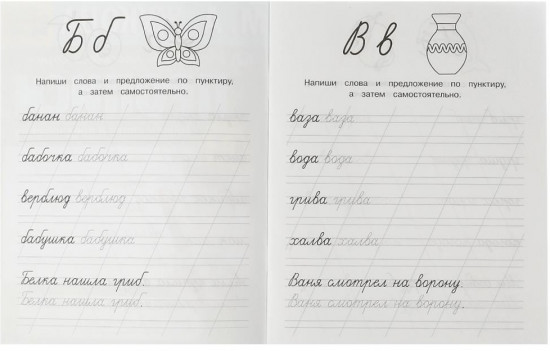 Б б
Напиши слова и предложение по пунктиру,
а затем самостоятельно.
банан банан
бабочка бабочка
верблюд верблюд
бабушка бабушка
Белка нашла гриб.
Белка нашла гриб.
В в
Напиши слова и предложение по пунктиру,
а затем самостоятельно.
ваза ваза
вода вода
грива грива
халва халва
Ваня смотрел на ворону.
Ваня смотрел на ворону.